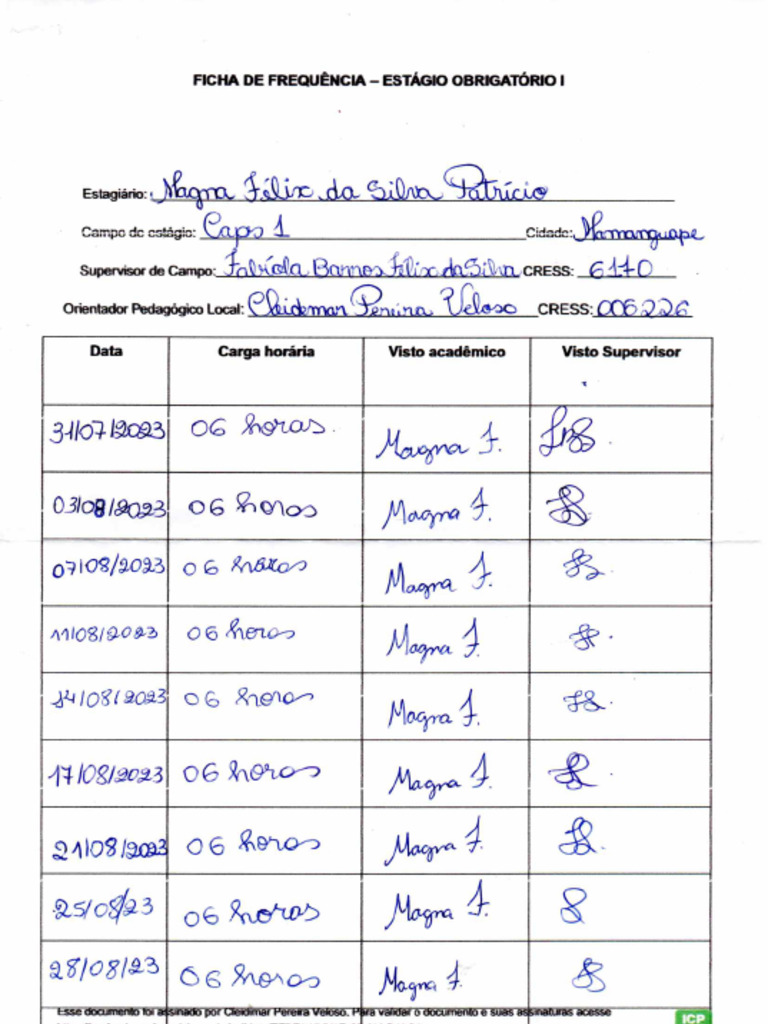 FICHA DE FREQUÊNCIA – ESTÁGIO OBRIGATÓRIO I
Estagiário: Magna Félix da Silva Patrício
Campo de estágio: Caps 1 Cidade: Mamanguape
Supervisor de Campo: Fabíola Barros Felix da Silva CRESS: 6170
Orientador Pedagógico Local: Cleidemar Pereira Veloso CRESS: 006226
Data Carga horária Visto acadêmico Visto Supervisor
31/07/2023 06 horas. Magna F.
03/08/2023 06 horas Magna F.
07/08/2023 06 horas Magna F.
11/08/2023 06 horas Magna F.
14/08/2023 06 horas Magna F.
17/08/2023 06 horas Magna F.
21/08/2023 06 horas Magna F.
25/08/23 06 horas Magna F.
28/08/23 06 horas Magna F.
Esse documento foi assinado por Cleidimar Pereira Veloso. Para validar o documento e suas assinaturas acesse
ICP